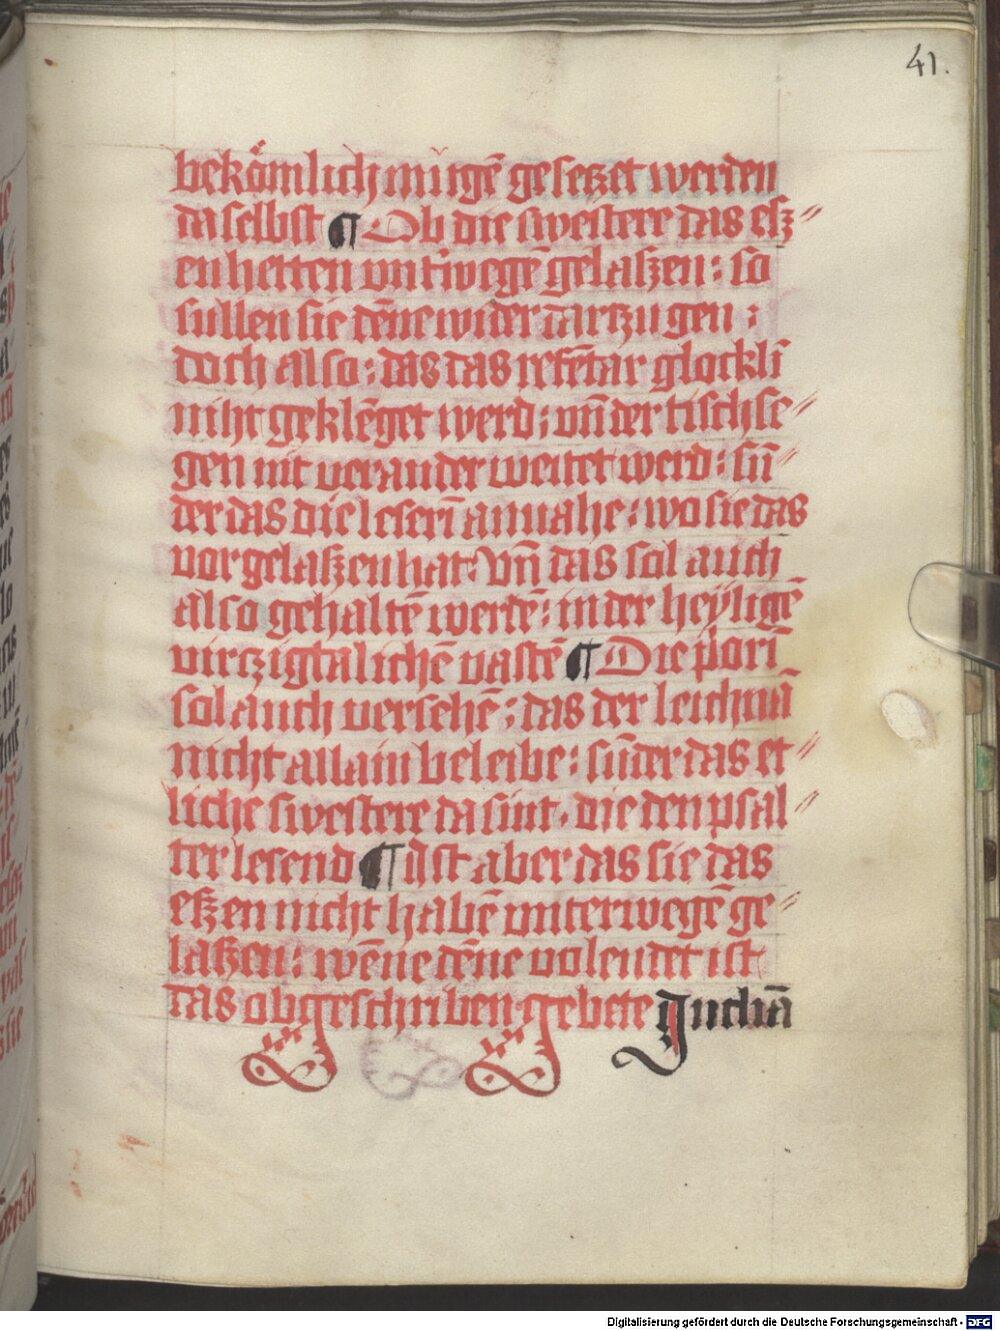 41.
bekömlich mügē gesetzet werden
daselbst ¶ Ob die swestere das esz⸗
en hetten vntwegē gelaszen : so
süllen sie dēne wider dartzu gen :
doch also : das das refētar glockli
niht geklēget werd : vn̄ der tischse⸗
gen nit verander weitet werd : sū⸗
der das die leserī anvahe : wo sie das
vor gelaszen hat : vn̄ das sol auch
also gehaltē werdē : in der heÿligē
virtzigtalichē vastē ¶ Die priorī
sol auch versehē : das der leichnā
nicht allain beleibe : sūder das et⸗
liche swestere da sint . die den psal⸗
ter lesend ¶ Ist aber das sie das
eszen nicht habē vnterwegē ge⸗
laszen : wēne dēne volendet ist
das obgeschriben gebete Inclinā
Digitalisierung gefördert durch die Deutsche Forschungsgemeinschaft - DFG